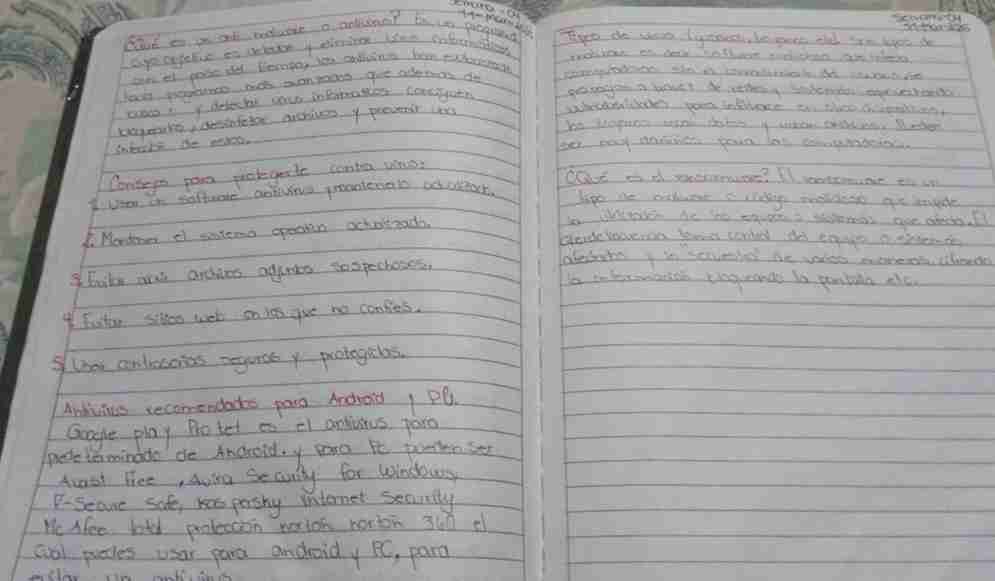 Semana - 04
¿Qué es un anti malware o antivirus? Es un programa
cuyo objetivo es detectar y eliminar virus informáticos
con el paso del tiempo, los antivirus han evolucionado
hacia programas más avanzados que además de
buscar y detectar virus informáticos consiguen
bloquearlo, desinfectar archivos y prevenir una
infección de estos.
Consejos para protegerte contra virus:
1 Usar un software antivirus y mantenerlo actualizado.
2 Mantener el sistema operativo actualizado.
3 Evitar abrir archivos adjuntos sospechosos.
4 Evitar sitios web en los que no confíes.
5 Usar contraseñas seguras y protegidas.
Antivirus recomendados para Android y PC.
Google play Protet es el antivirus para
predeterminado de Android. y para PC pueden ser
Avast Free, Avira Security for Windows,
F-Secure Safe, kaspashy internet Security
Mc Afee total proteccion norton norton 360 el
cual puedes usar para android y PC, para
evitar un antivirus
Semana 04
Tipo de virus
malware es decir software malicioso que infecta
computadoras sin el consentimiento del usuario se
propagan a través de redes y sistemas aprovechando
vulnerabilidades para infiltrarse en otros dispositivos,
ser muy dañinos para las computadoras.
¿Qué es el ransomware? El ransomware es un
tipo de malware o código malicioso que impide
la utilización de los equipos o sistemas que afecta. El
ciberdelincuente toma control del equipo o sistema
infectado y lo "secuestra" de varias maneras, cifrando
la información bloqueando la pantalla etc.